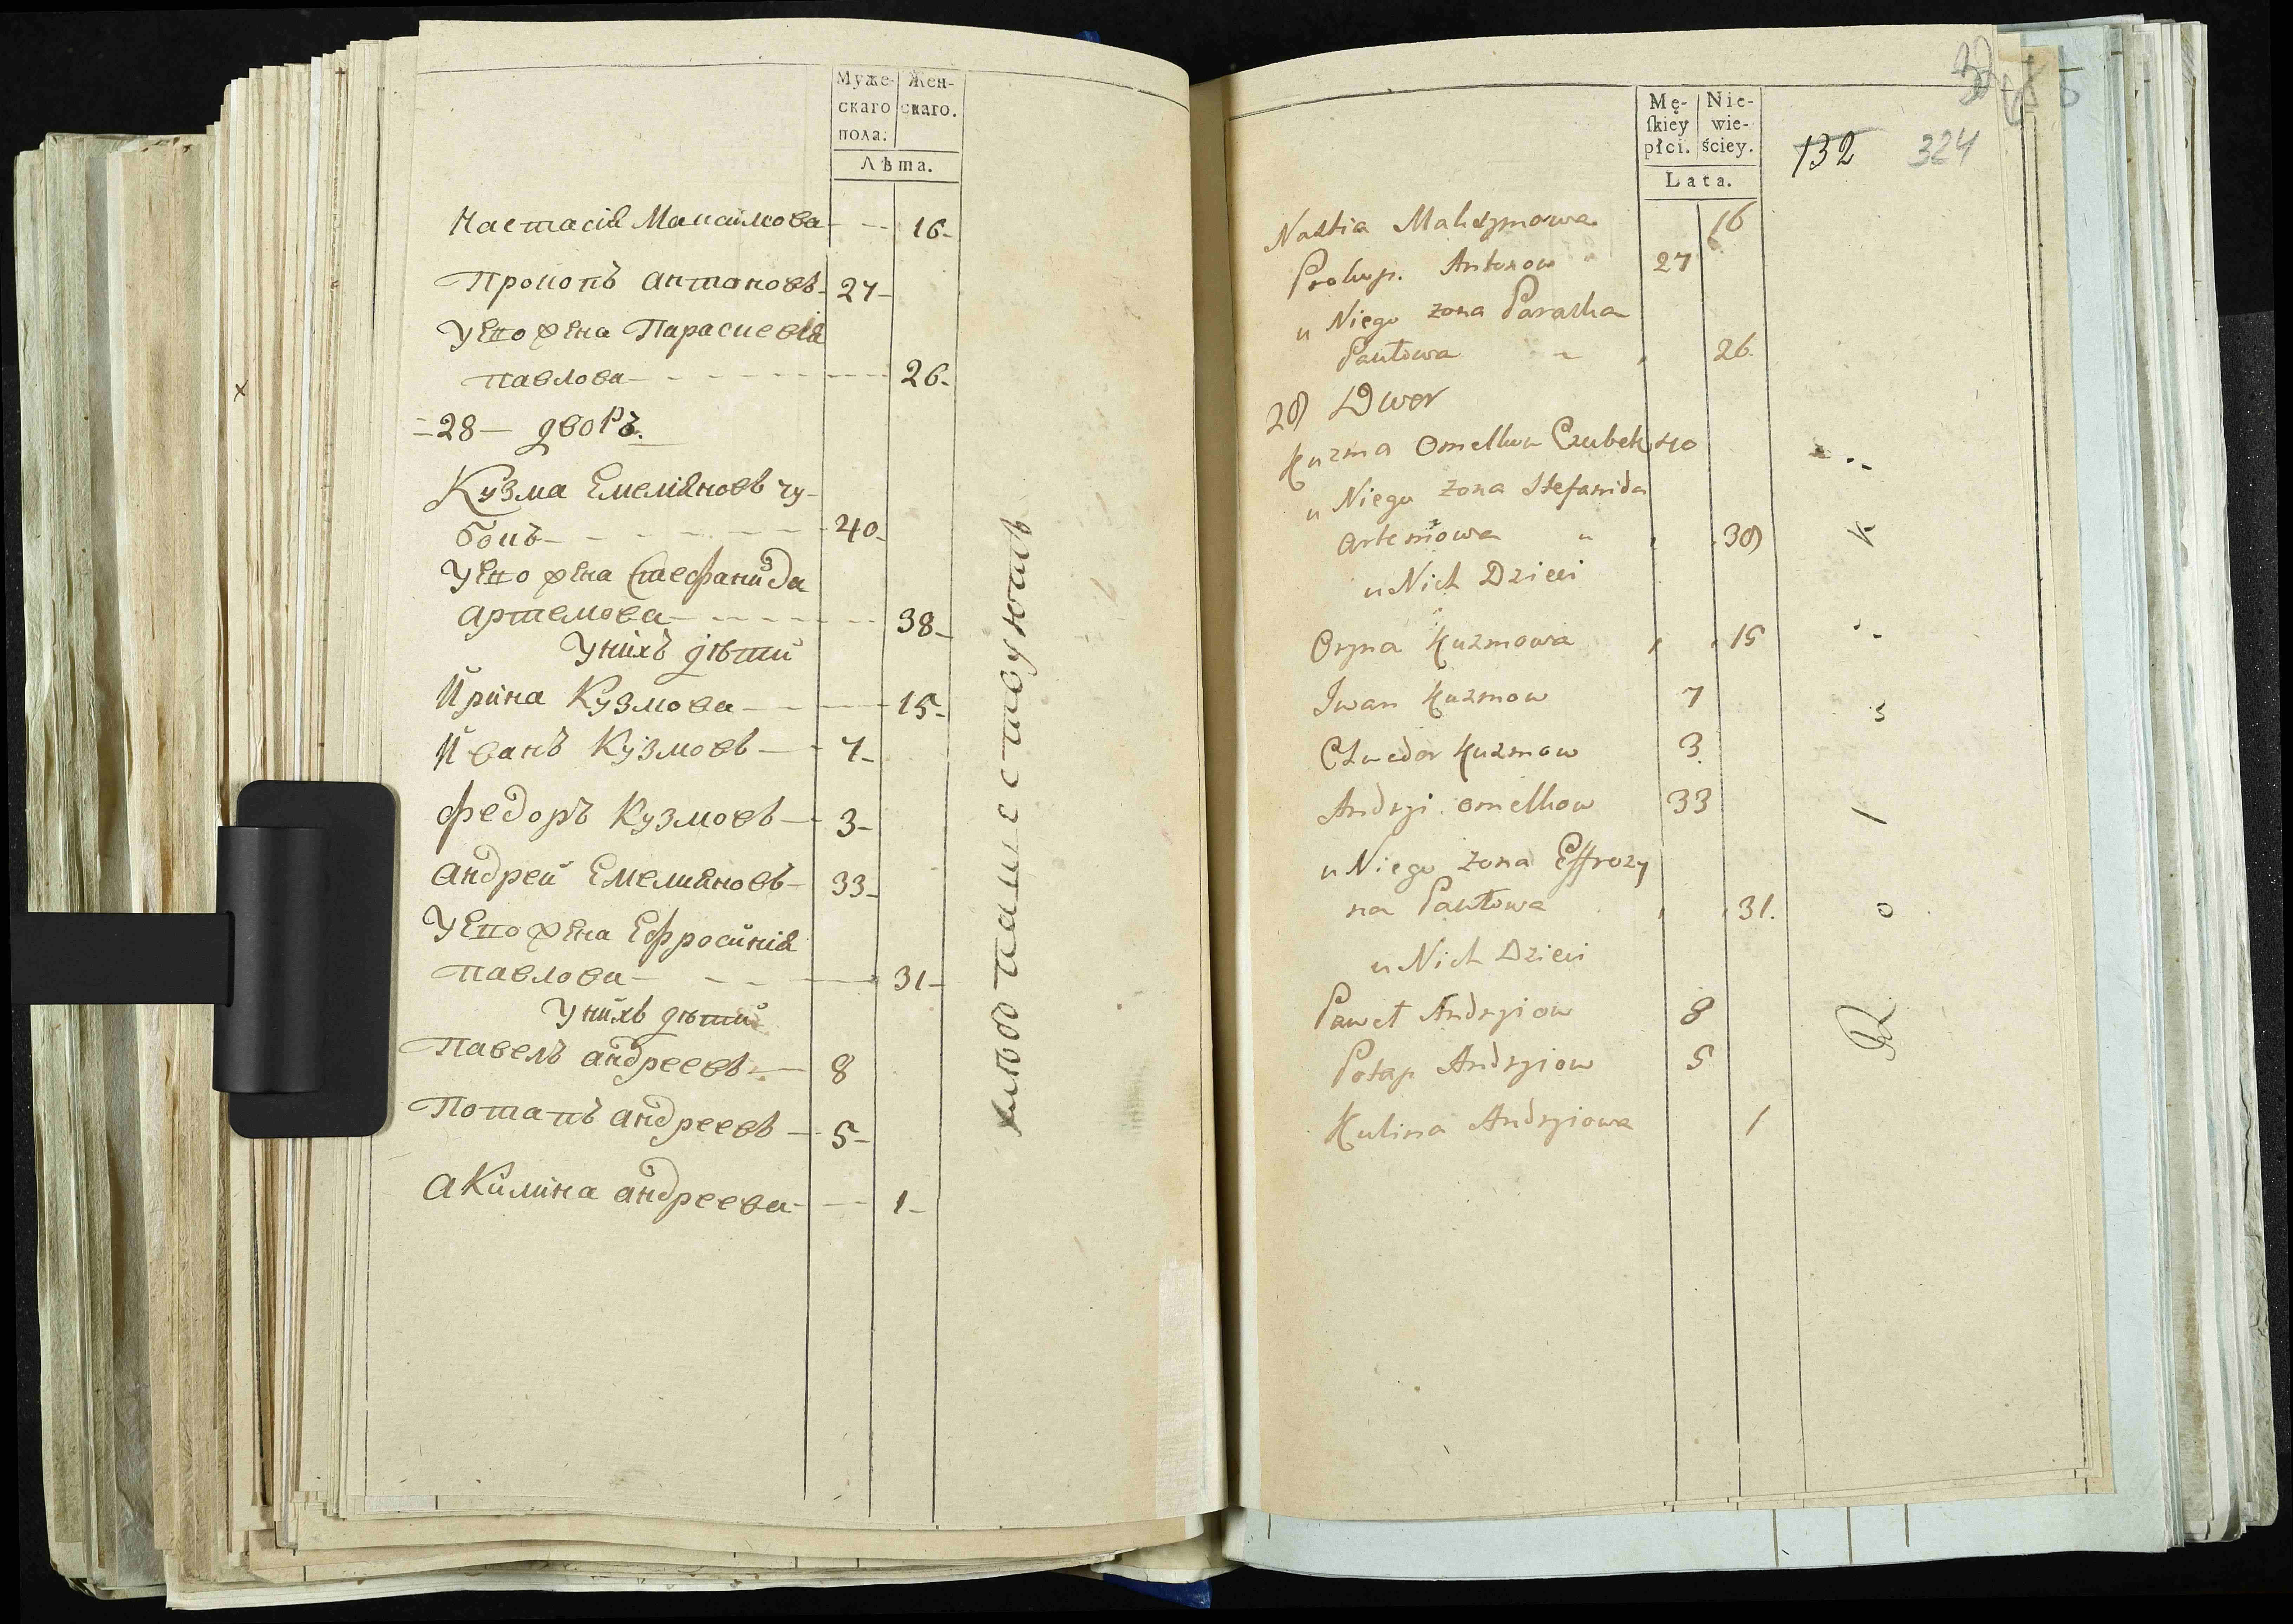 Муже- Жен-
скаго скаго.
пола.
Лѣта.
Настасія Максимова 16
Прокопъ Антоновъ 27
У Его жена Парасковія
Павлова 26
28 дворъ.
Кузма Емеліяновъ Чу-
бокъ 40
У Его жена Стефанида
Артемова 38
У нихъ дѣти
Ирина Кузмова 15
Иванъ Кузмовъ 7
Федоръ Кузмовъ 3
Андрей Емелияновъ 33
У Его жена Ефросинія
Павлова 31
У нихъ дѣти
Павелъ Андреевъ 8
Потапъ Андреевъ 5
Акилина Андреева 1
хлебопашествуютъ
Mę- Nie-
skiey wie-
płci. ściey.
Lata.
132 324
Nastia Maksymowa 16
Prokop. Antonow 27
u Niego żona Paraska
Pawłowa 26.
28 Dwor
Kuzma Omelkow Czubek 40
u Niego żona Stefanida
Artemowa 38
u Nich Dzieci
Oryna Kuzmowa 15
Iwan Kuzmow 7
Chwedor Kuzmow 3
Andryi Omelkow 33
u Niego żona Effrozy
na Pawłowa 31.
u Nich Dzieci
Paweł Andryiow 8
Potap Andryiow 5
Kulina Andryiowa 1